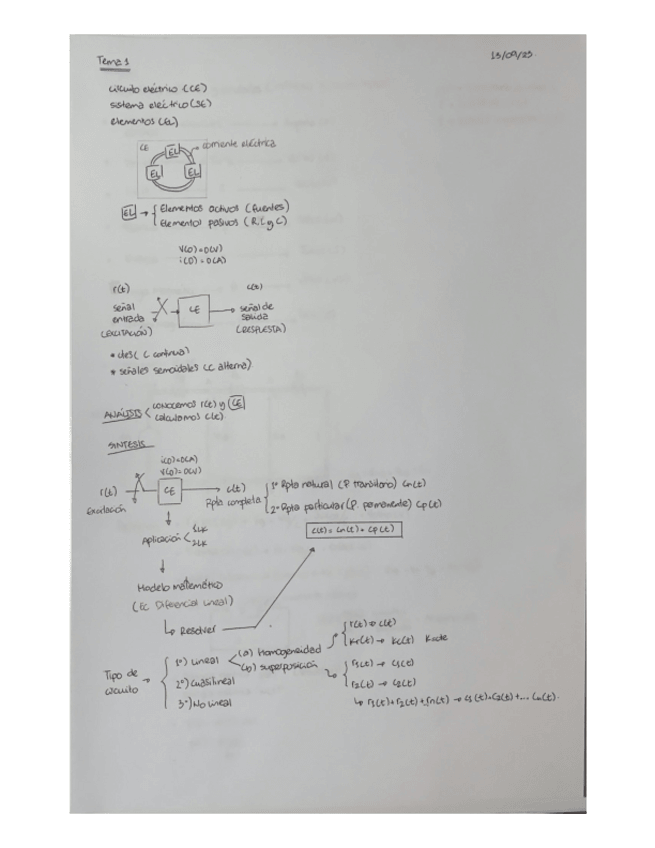 Tema 1
15/09/25.
circuito eléctrico (CE)
sistema eléctrico (SE)
Elementos (EL)
CE
corriente eléctrica
EL
EL EL
EL → Elementos activos (fuentes)
Elementos pasivos (R, L y C)
V(0)=0(V)
i(0)=0(A)
r(t) c(t)
señal entrada → CE → señal de salida
(EXCITACIÓN) (RESPUESTA)
• ctes ( C continua)
• señales senoidales (C alterna)
ANÁLISIS conocemos r(t) y CE
calculamos c(t)
SINTESIS
i(0)=0(A)
V(0)=0(V)
r(t) CE → c(t)
Excitación
Rpta completa
1º Rpta natural (R transitorio) cn(t)
2º Rpta particular (R. permanente) cp(t)
c(t)= cn(t)+ cp(t)
Aplicación 1LK
2LK
Modelo matemático
(Ec. Diferencial Lineal)
↳ Resolver
Tipo de circuito →
1º) Lineal
(a) Homogeneidad
(b) superposición
2º) Cuasilineal
3º) No Lineal
r(t) → c(t)
Kr(t) → Kc(t) K=cte
r1(t) → c1(t)
r2(t) → c2(t)
↳ r1(t)+r2(t)+rn(t) → c1(t)+c2(t)+... cn(t).